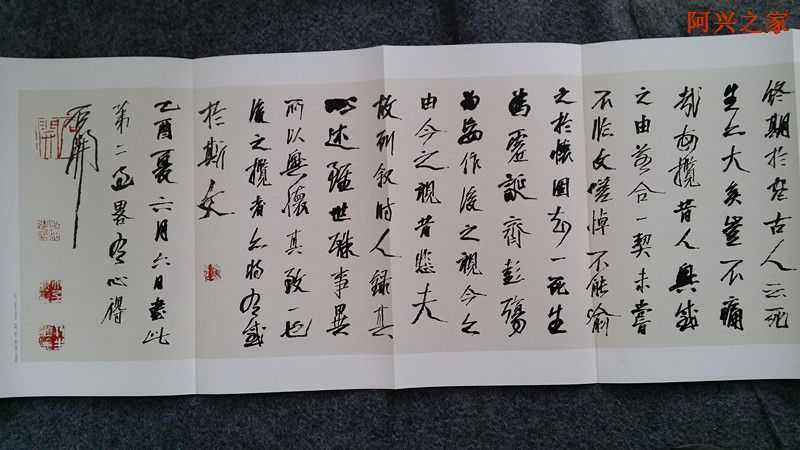 阿兴之家
終期於盡古人云死
生亦大矣豈不痛
哉每攬昔人興感
之由若合一契未嘗
不臨文嗟悼不能喻
之於懷固知一死生
為虛誕齊彭殤
為妄作後之視今亦
由今之視昔悲夫
故列敘時人錄其
所述雖世殊事異
所以興懷其致一也
後之攬者亦將有感
於斯文
乙酉夏六月六日書此
第二過畧有心得
石開